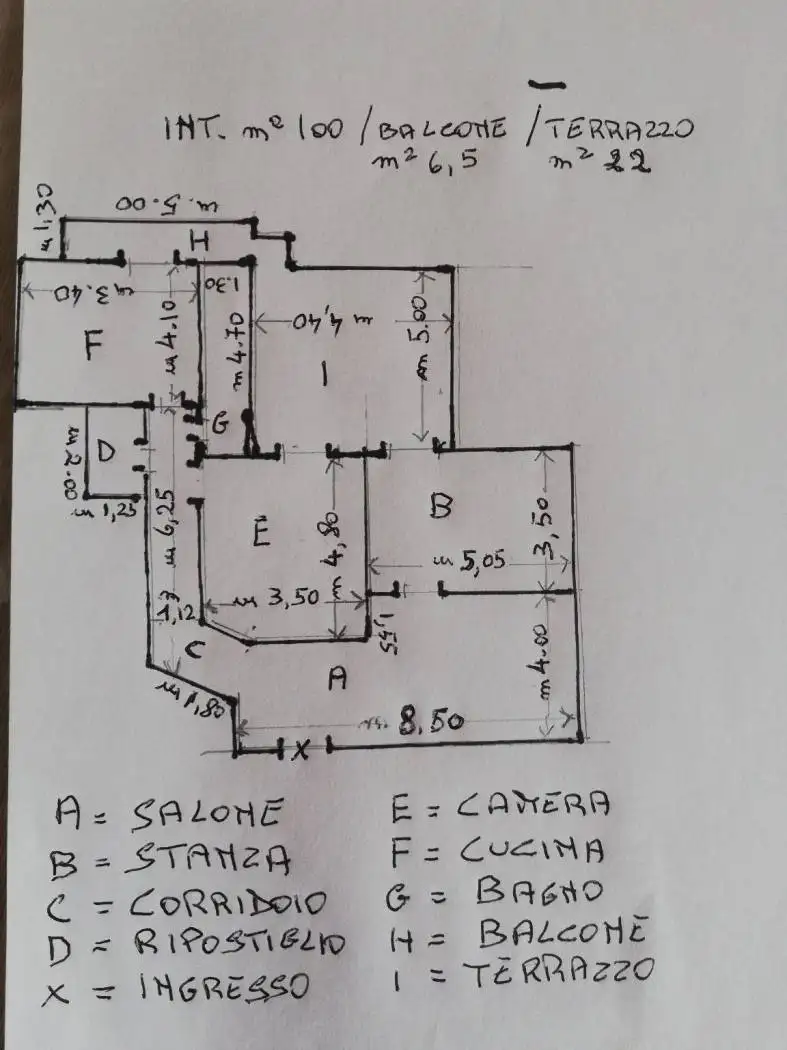 INT. m² 100 / BALCONE / TERRAZZO
m² 6,5 m² 22
m 1,30
m. 5.00
H
m 3.40
1.30
m 4.10
F
m 4.70
m 4,40
m 5.00
I
G
D
m 2.00
m 1,25
m 6,25
E
m 4,80
B
3,50
m 5,05
m 3,50
1,12
C
1,55
A
m 4.00
m 1,80
m. 8,50
X
A = SALONE
B = STANZA
C = CORRIDOIO
D = RIPOSTIGLIO
X = INGRESSO
E = CAMERA
F = CUCINA
G = BAGNO
H = BALCONE
I = TERRAZZO